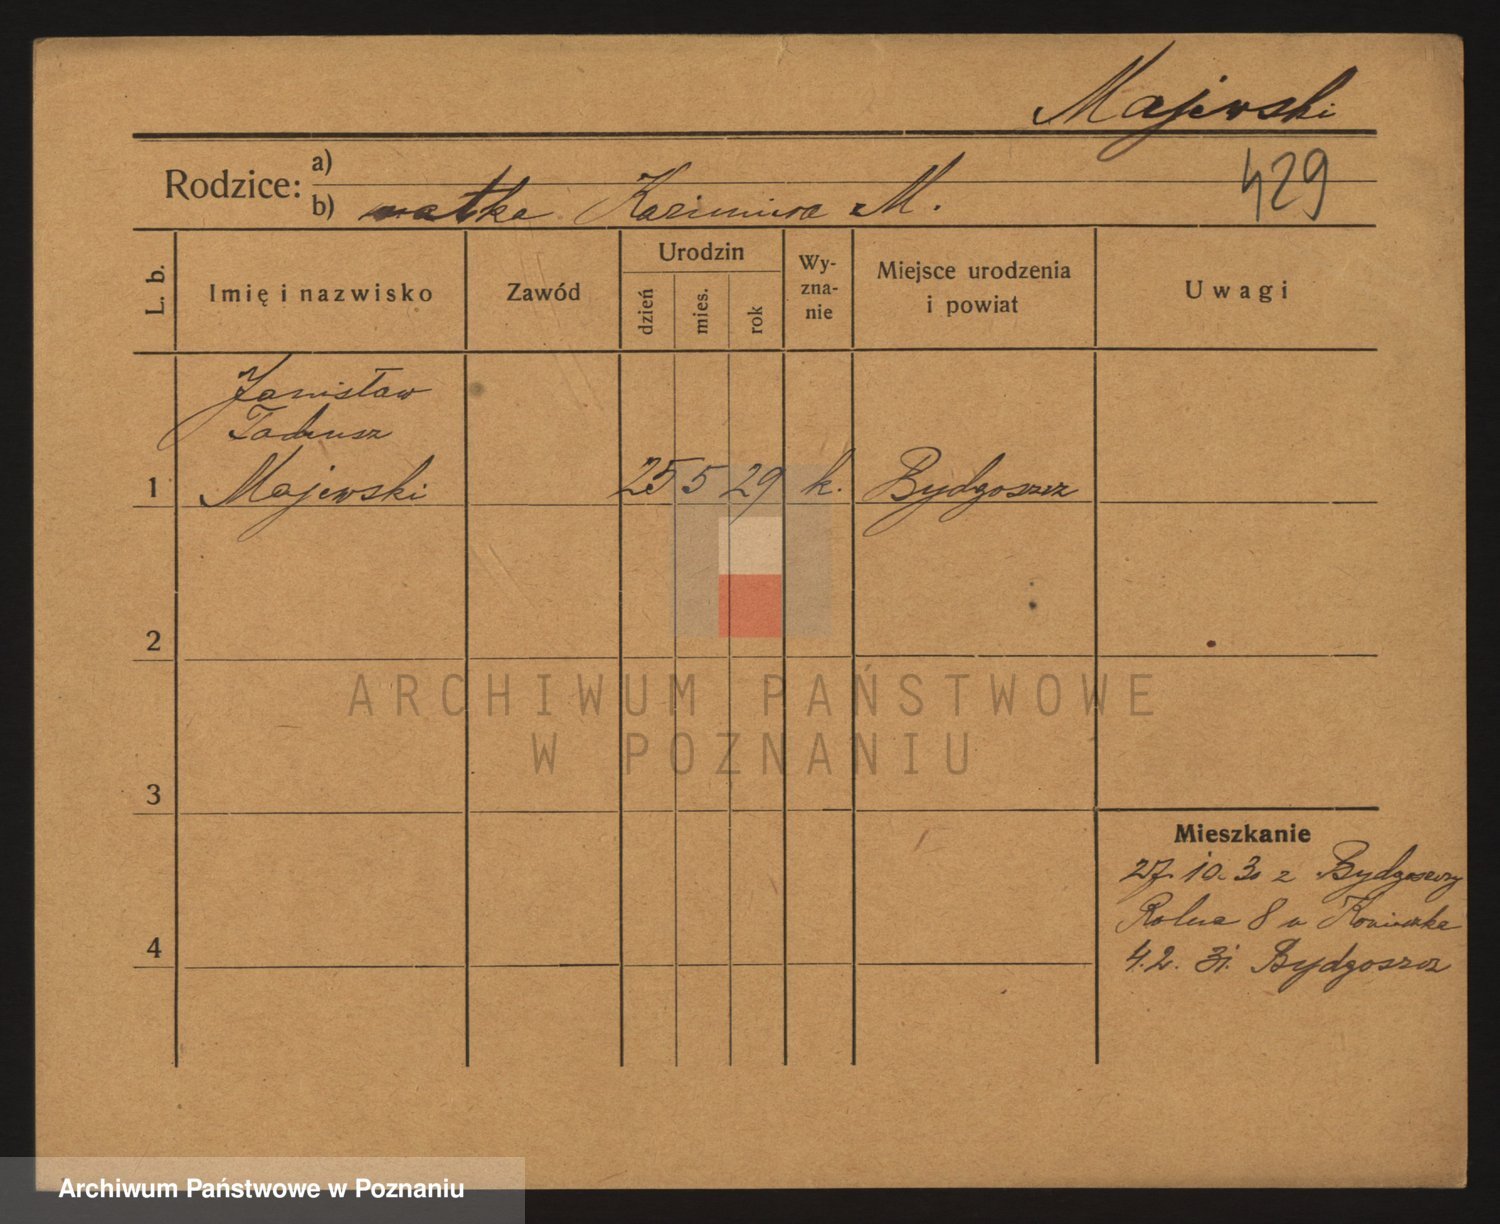 Majewski
429
Rodzice:
a)
b) matka Kazimiera M.
L. b.
Imię i nazwisko
Zawód
Urodzin
dzień
mies.
rok
Wy-
zna-
nie
Miejsce urodzenia
i powiat
Uwagi
Janisław
Tadeusz
1 Majewski 25 5 29 k. Bydgoszcz
2
3
4
Mieszkanie
27. 10. 30 z Bydgoszczy
Rolna 8 u
4. 2. 31. Bydgoszcz
ARCHIWUM PAŃSTWOWE
W POZNANIU
Archiwum Państwowe w Poznaniu